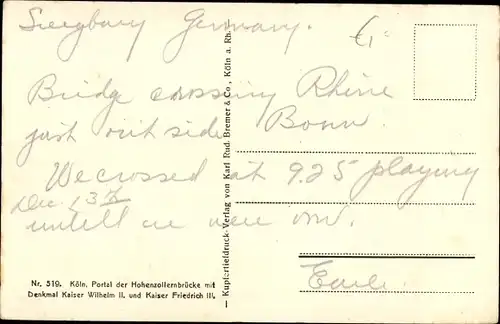 Siegburg Germany.
Bridge crossing Rhine
just outside Bonn.
We crossed at 9.25 playing
Dec 13
untill we
Earle
Kupfertiefdruck-Verlag von Karl Rud. Bremer & Co., Köln a. Rh.
Nr. 519. Köln. Portal der Hohenzollernbrücke mit
Denkmal Kaiser Wilhelm II. und Kaiser Friedrich III.